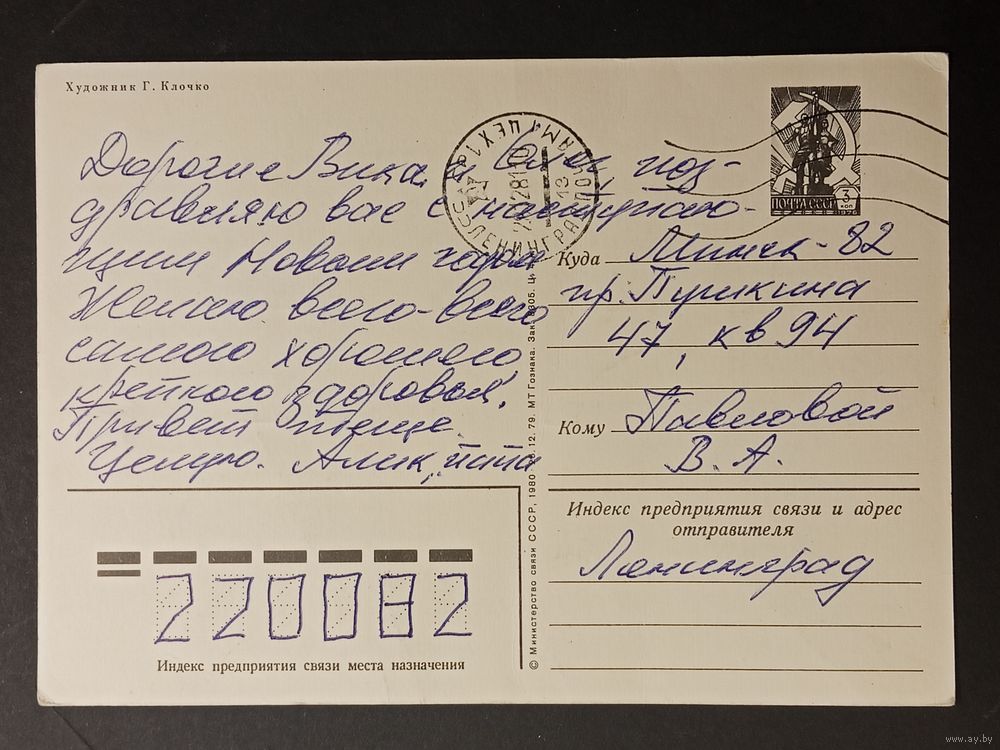 Художник Г. Клочко
Дорогие Вика и Олег, поз-
дравляю вас с наступаю-
щим Новым годом
Желаю всего-всего
самого хорошего,
крепкого здоровья.
Привет теще.
Целую. Алик,
ПОЧТА СССР
3
КОП
1976
ЛЕНИНГРАД
Куда Минск-82
пр. Пушкина
47, кв 94
Кому Павловой
В. А.
Индекс предприятия связи и адрес
отправителя
Ленинград
220082
Индекс предприятия связи места назначения
© Министерство связи СССР, 1980
12. 79. МТ Гознака.
www.ay.by